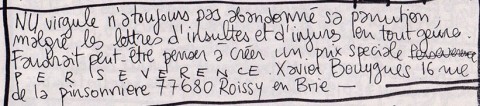 NU virgule n'a toujours pas abandonné sa parution,
malgré les lettres d'insultes et d'injures en tout genre.
Faudrait peut-être penser à créer un prix speciale
PERSEVERENCE. Xaviot Bouygues 16 rue
de la pinsonniere 77680 Roissy en Brie —